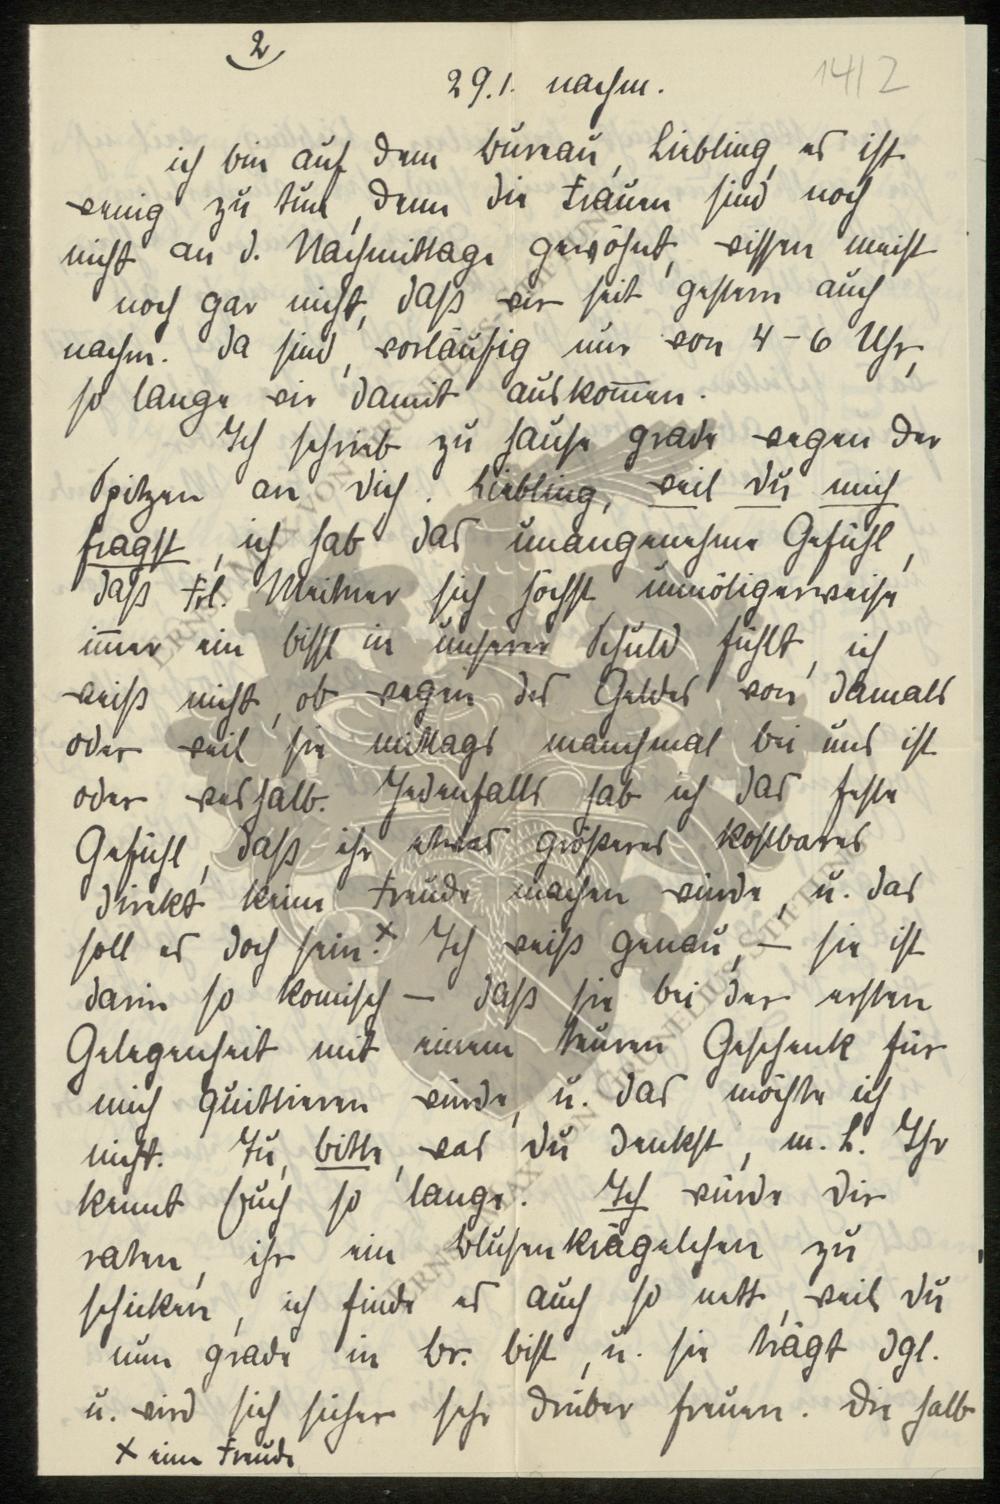 2
29.1. nachm.
14|2
ich bin auf dem Bureau, Liebling, es ist
wenig zu tun, denn die Frauen sind noch
nicht an d. Nachmittage gewöhnt, wissen meist
noch gar nicht, daß wir seit gestern auch
nachm. da sind, vorläufig nur von 4–6 Uhr,
so lange wir damit auskom̅en.
Ich schrieb zu hause grade wegen der
Spitzen an Dich. Liebling, weil du mich
fragst, ich hab das unangenehme Gefühl,
daß Frl. Meitner sich höchst unnötigerweise
im̅er ein bissl in unserer Schuld fühlt, ich
weiß nicht, ob wegen des Geldes von damals
oder weil sie mittags manchmal bei uns ist
oder weshalb. Jedenfalls hab ich das feste
Gefühl, daß ihr etwas größeres kostbares
direkt keine Freude machen würde, u. das
soll es doch sein.x Ich weiß genau, – sie ist
darin so komisch – daß sie bei der ersten
Gelegenheit mit einem teuren Geschenk für
mich quittieren würde, u. das möchte ich
nicht. Tu, bitte, was du denkst, m. L. Ihr
kennt Euch so lange. Ich würde dir
raten, ihr ein Blusenkrägelchen zu
schicken, ich finde es auch so nett, weil du
nun grade in Br. bist, u. sie trägt dgl.
u. wird sich sicher sehr drüber freuen. Die halb
x eine Freude
ERNST MAX VON CORNELIUS STIFTUNG